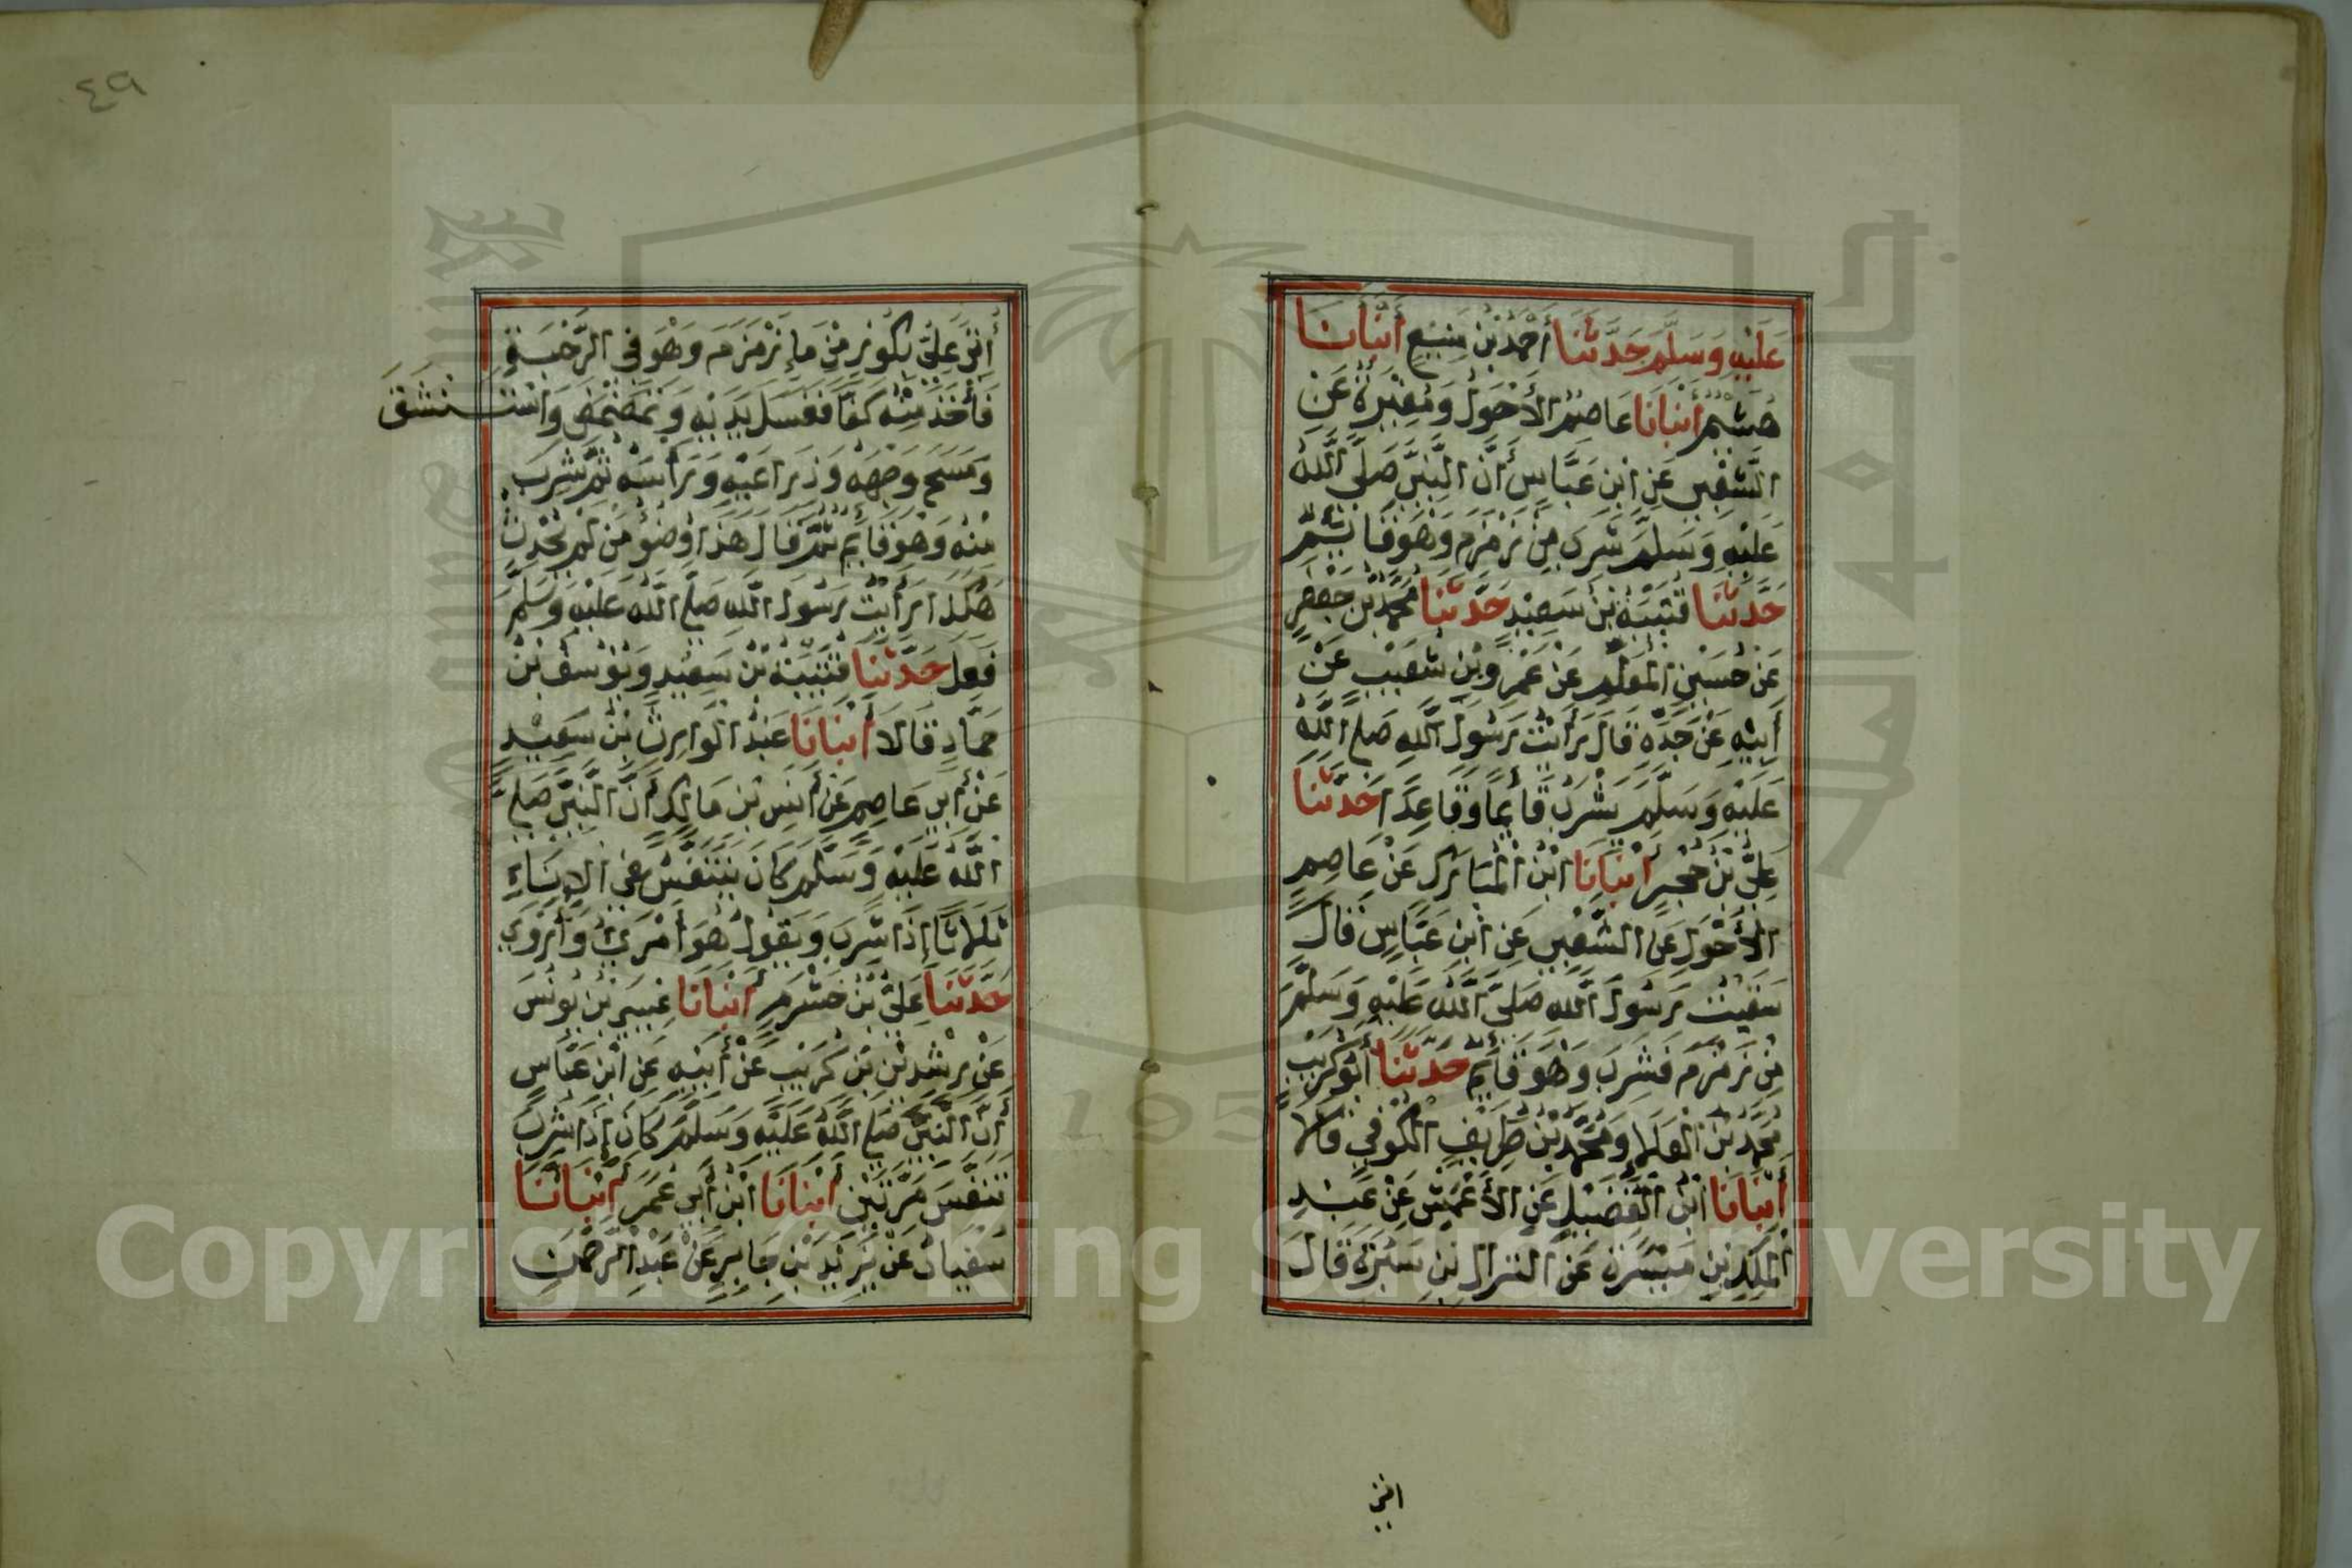 عَلَيْهِ وَسَلَّمَ حَدَّثَنَا أَحْمَدُ بْنُ مَنِيعٍ أَنْبَأَنَا
هُشَيْمٌ أَنْبَأَنَا عَاصِمُ الأَحْوَلُ وَمُغِيْرَةُ عَنِ
الشَّعْبِيِّ عَنِ ابْنِ عَبَّاسٍ أَنَّ النَّبِيَّ صَلَّى اللَّهُ
عَلَيْهِ وَسَلَّمَ شَرِبَ مِنْ زَمْزَمَ وَهُوَ قَائِمٌ
حَدَّثَنَا قُتَيْبَةُ بْنُ سَعِيْدٍ حَدَّثَنَا مُحَمَّدُ بْنُ جَعْفَرٍ
عَنْ حُسَيْنِ الْمُعَلِّمِ عَنْ عَمْرِو بْنِ شُعَيْبٍ عَنْ
أَبِيْهِ عَنْ جَدِّهِ قَالَ رَأَيْتُ رَسُولَ اللَّهِ صَلَّى اللَّهُ
عَلَيْهِ وَسَلَّمَ يَشْرَبُ قَائِمًا وَقَاعِدًا حَدَّثَنَا
عَلِيُّ بْنُ حُجْرٍ أَنْبَأَنَا ابْنُ الْمُبَارَكِ عَنْ عَاصِمٍ
الأَحْوَلِ عَنِ الشَّعْبِيِّ عَنِ ابْنِ عَبَّاسٍ قَالَ
سَقَيْتُ رَسُولَ اللَّهِ صَلَّى اللَّهُ عَلَيْهِ وَسَلَّمَ
مِنْ زَمْزَمَ فَشَرِبَ وَهُوَ قَائِمٌ حَدَّثَنَا أَبُو كُرَيْبٍ
مُحَمَّدُ بْنُ الْعَلَا وَمُحَمَّدُ بْنُ طَرِيْفِ الْكُوفِيُّ قَالَا
أَنْبَأَنَا ابْنُ الْفُضَيْلِ عَنِ الأَعْمَشِ عَنْ عَبْدِ
الْمَلِكِ بْنِ مَيْسَرَةَ عَنِ النَّزَّالِ بْنِ سَبْرَةَ قَالَ
اتي
٤٩
أُتِيَ عَلِيٌّ بِكُوْزٍ مِنْ مَاءِ زَمْزَمَ وَهُوَ فِي الرَّحْبَةِ
فَأَخَذَ مِنْهُ كَفًّا فَغَسَلَ يَدَيْهِ وَتَمَضْمَضَ وَاسْتَنْشَقَ
وَمَسَحَ وَجْهَهُ وَذِرَاعَيْهِ وَرَأْسَهُ ثُمَّ شَرِبَ
مِنْهُ وَهُوَ قَائِمٌ ثُمَّ قَالَ هَذَا وُضُوْءُ مَنْ لَمْ يُحْدِثْ
هَكَذَا رَأَيْتُ رَسُولَ اللَّهِ صَلَّى اللَّهُ عَلَيْهِ وَسَلَّمَ
فَعَلَ حَدَّثَنَا قُتَيْبَةُ بْنُ سَعِيْدٍ وَيُوْسُفُ بْنُ
حَمَّادٍ قَالَا أَنْبَأَنَا عَبْدُ الْوَارِثِ بْنُ سَعِيْدٍ
عَنْ أَبِي عَاصِمٍ عَنْ أَنَسِ بْنِ مَالِكٍ أَنَّ النَّبِيَّ صَلَّى
اللَّهُ عَلَيْهِ وَسَلَّمَ كَانَ يَتَنَفَّسُ فِي الإِنَاءِ
ثَلَاثًا إِذَا شَرِبَ وَيَقُوْلُ هُوَ أَمْرَئُ وَأَرْوَى
حَدَّثَنَا عَلِيُّ بْنُ خَشْرَمٍ أَنْبَأَنَا عِيسَى بْنُ يُونُسَ
عَنْ رِشْدِيْنِ بْنِ كُرَيْبٍ عَنْ أَبِيْهِ عَنِ ابْنِ عَبَّاسٍ
أَنَّ النَّبِيَّ صَلَّى اللَّهُ عَلَيْهِ وَسَلَّمَ كَانَ إِذَا شَرِبَ
تَنَفَّسَ مَرَّتَيْنِ أَنْبَأَنَا ابْنُ أَبِي عُمَرَ أَنْبَأَنَا
سُفْيَانُ عَنْ يَزِيْدَ بْنِ جَابِرٍ عَنْ عَبْدِ الرَّحْمَنِ
Copyright © King Saud University
195